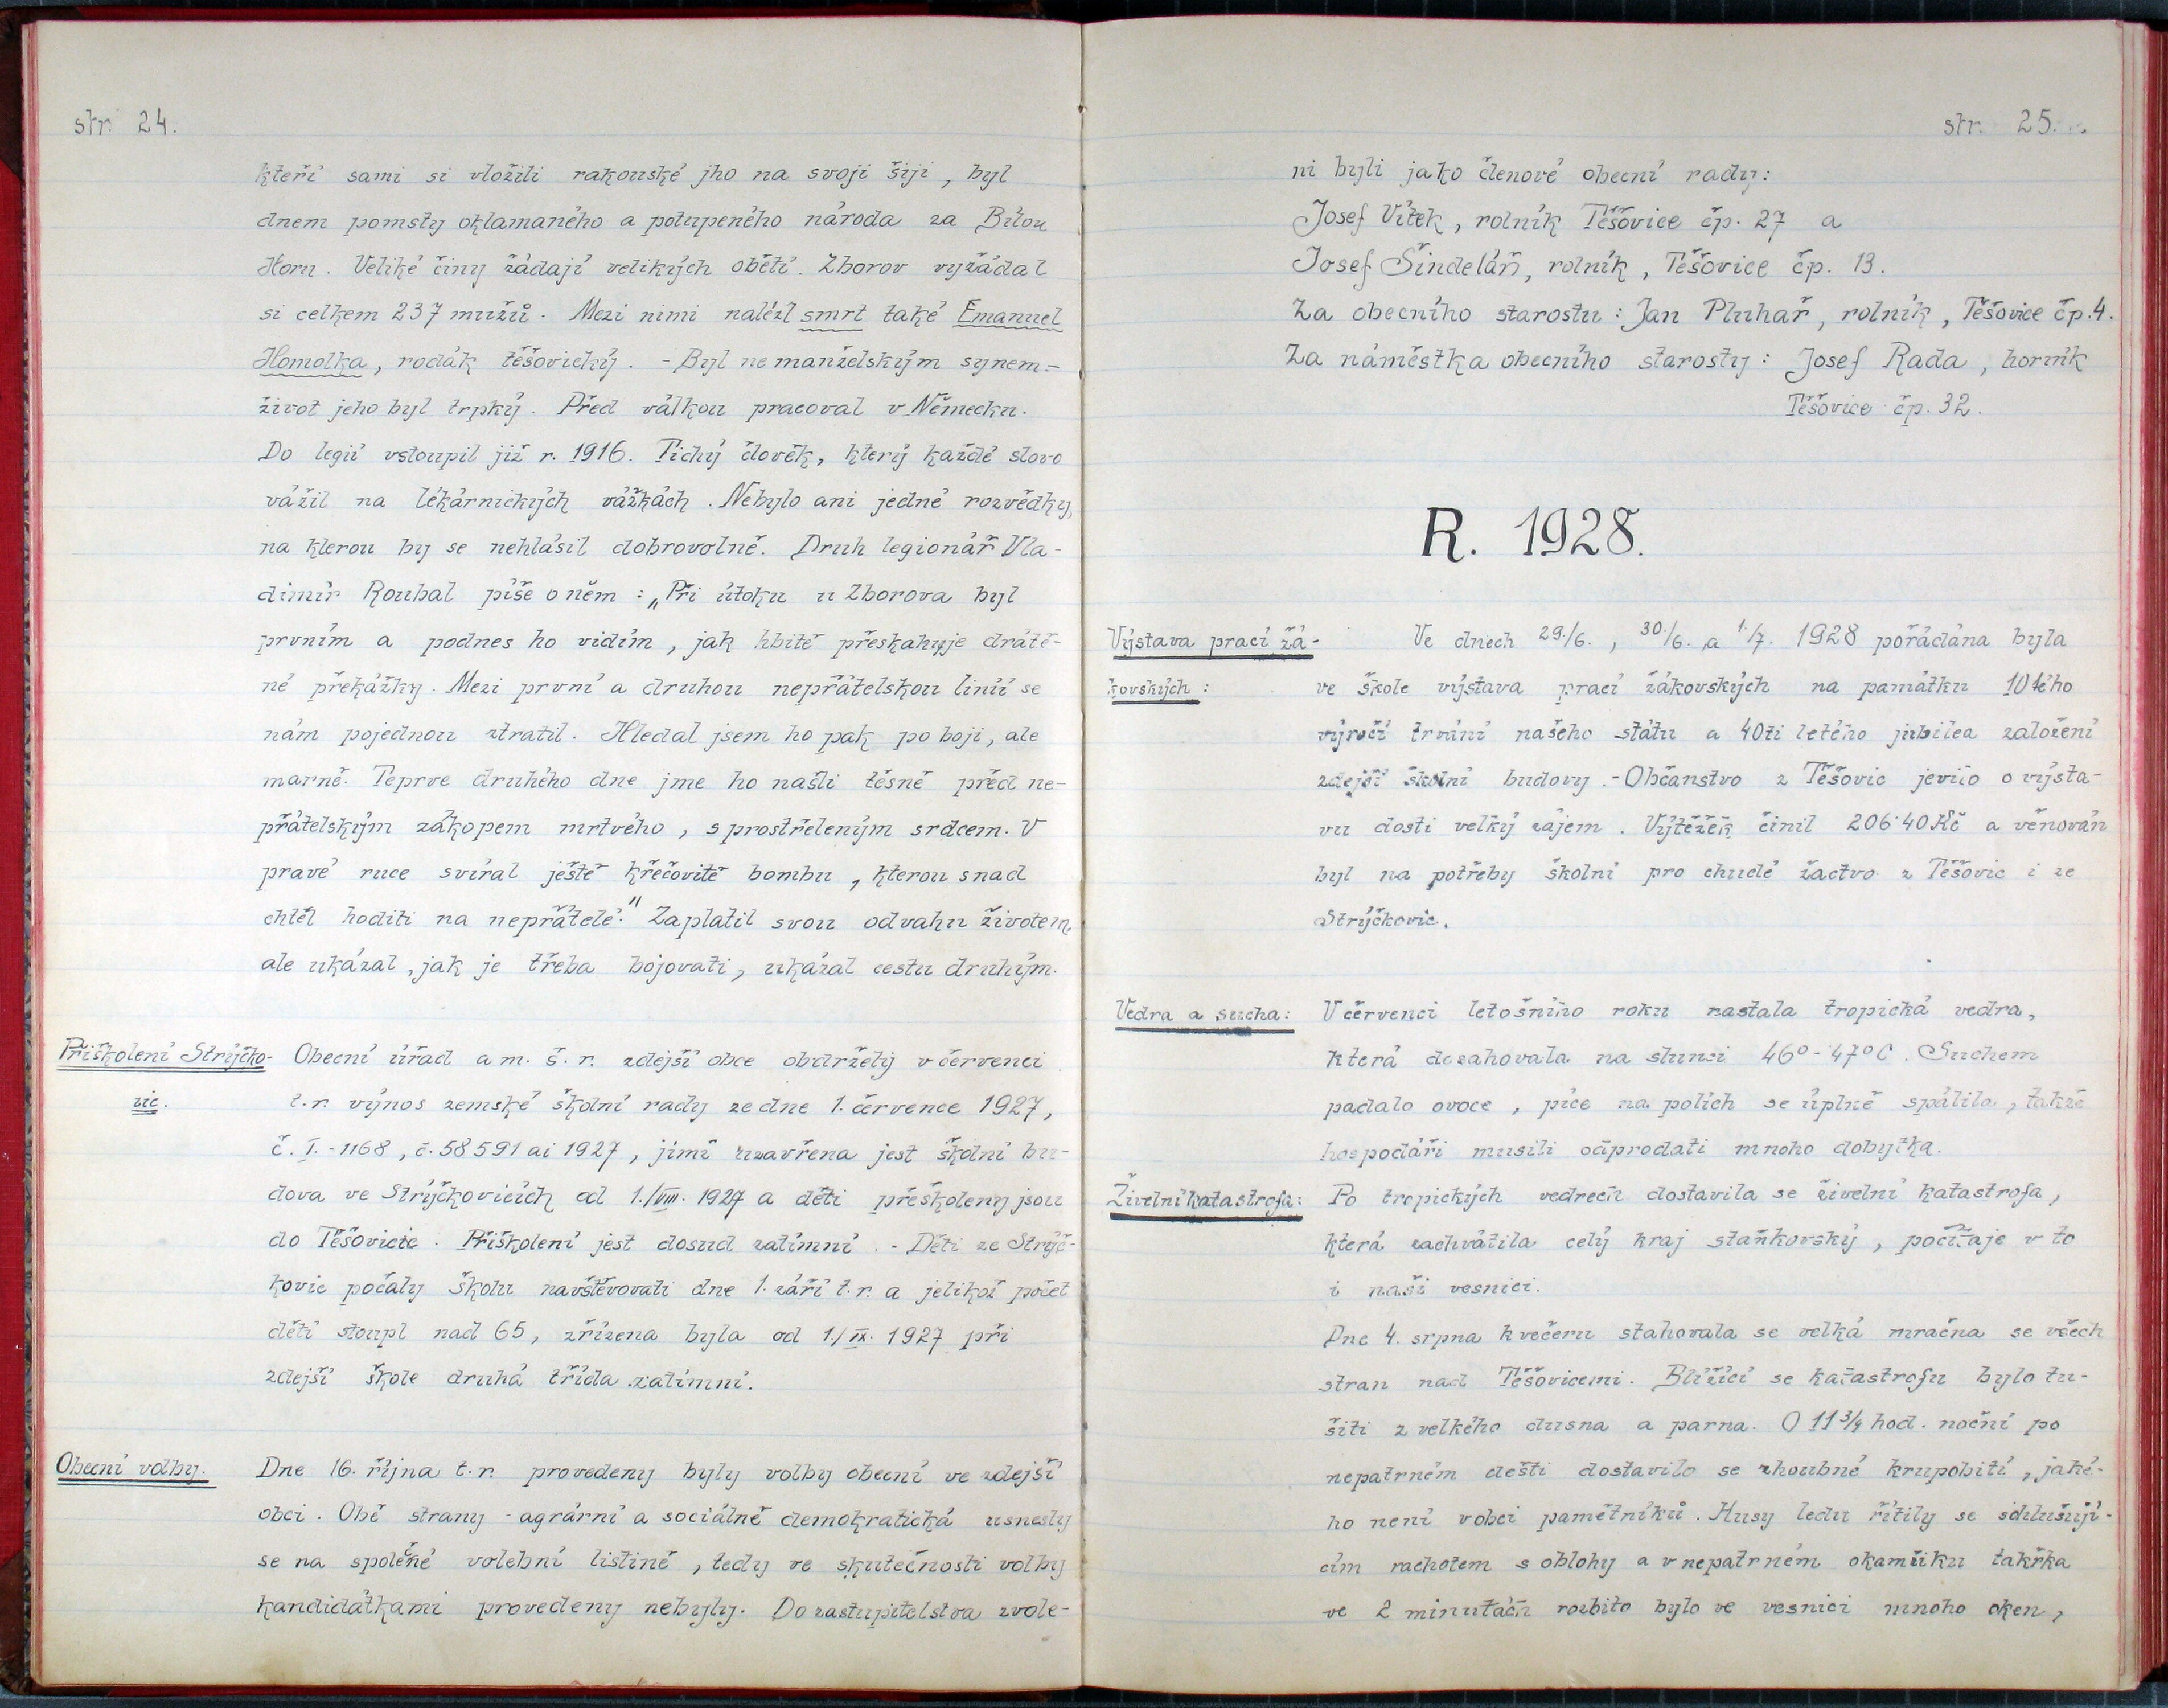 str. 24.
kteří sami si vložili rakouské jho na svoji šiji, byl
dnem pomsty oklamaného a potupeného národa za Bílou
Horu. Veliké činy žádají velikých obětí. Zborov vyžádal
si celkem 237 mužů. Mezi nimi nalézl smrt také Emanuel
Homolka, rodák těšovický. - Byl nemanželským synem -
život jeho byl trpký. Před válkou pracoval v Německu.
Do legií vstoupil již r. 1916. Tichý člověk, který každé slovo
vážil na lékárnických vážkách. Nebylo ani jedné rozvědky,
na kterou by se nehlásil dobrovolně. Druh legionář Vla-
dimír Rouhal píše o něm: „Při útoku u Zborova byl
prvním a podnes ho vidím, jak hbitě přeskahuje drátě-
né překážky. Mezi první a druhou nepřátelskou linií se
nám pojednou ztratil. Hledal jsem ho pak po boji, ale
marně. Teprve druhého dne jme ho našli těsně před ne-
přátelským zákopem mrtvého, s prostřeleným srdcem. V
pravé ruce svíral ještě křečovitě bombu, kterou snad
chtěl hoditi na nepřátelé." Zaplatil svou odvahu životem,
ale ukázal, jak je třeba bojovati, ukázal cestu druhým.
Přiškolení Strýčko-
vic.
Obecní úřad a m. š. r. zdejší obce obdržely v červenci
t. r. výnos zemské školní rady ze dne 1. července 1927,
č. I. - 1168, č. 58591 ai 1927, jímž uzavřena jest školní bu-
dova ve Strýčkovicích od 1./VIII. 1927 a děti přeškoleny jsou
do Těšovicic. Přiškolení jest dosud zatímní. - Děti ze Strýč-
kovic počaly školu navštěvovati dne 1. září t. r. a jelikož počet
dětí stoupl nad 65, zřízena byla od 1./IX. 1927 při
zdejší škole druhá třída zatímní.
Obecní volby.
Dne 16. října t. r. provedeny byly volby obecní ve zdejší
obci. Obě strany - agrární a sociálně demokratická usnesly
se na společné volební listině, tedy ve skutečnosti volby
kandidátkami provedeny nebyly. Do zastupitelstva zvole-
str. 25.
ni byli jako členové obecní rady:
Josef Vítek, rolník Těšovice čp. 27 a
Josef Šindelář, rolník, Těšovice čp. 13.
Za obecního starostu: Jan Pluhař, rolník, Těšovice čp. 4.
Za náměstka obecního starosty: Josef Rada, horník
Těšovice čp. 32.
R. 1928.
Výstava prací žá-
kovských:
Ve dnech 29./6., 30./6. a 1./7. 1928 pořádána byla
ve škole výstava prací žákovských na památku 10tého
výročí trvání našeho státu a 40ti letého jubilea založení
zdejší školní budovy. - Občanstvo z Těšovic jevilo o výsta-
vu dosti velký zájem. Výtěžek činil 206·40 Kč a věnován
byl na potřeby školní pro chudé žactvo z Těšovic i ze
Strýčkovic.
Vedra a sucha:
V červenci letošního roku nastala tropická vedra,
která dosahovala na slunci 46° - 47° C. Suchem
padalo ovoce, píce na polích se úplně spálila, takže
hospodáři musili odprodati mnoho dobytka.
Živelní katastrofa:
Po tropických vedrech dostavila se živelní katastrofa,
která zachvátila celý kraj staňkovský, počítaje v to
i naši vesnici.
Dne 4. srpna k večeru stahovala se velká mračna se všech
stran nad Těšovicemi. Blížící se katastrofu bylo tu-
šiti z velkého dusna a parna. O 11 3/4 hod. noční po
nepatrném dešti dostavilo se zhoubné krupobití, jaké-
ho není v obci pamětníků. Husy ledu řítily se sohlušují-
cím rachotem s oblohy a v nepatrném okamžiku takřka
ve 2 minutách rozbito bylo ve vesnici mnoho oken,